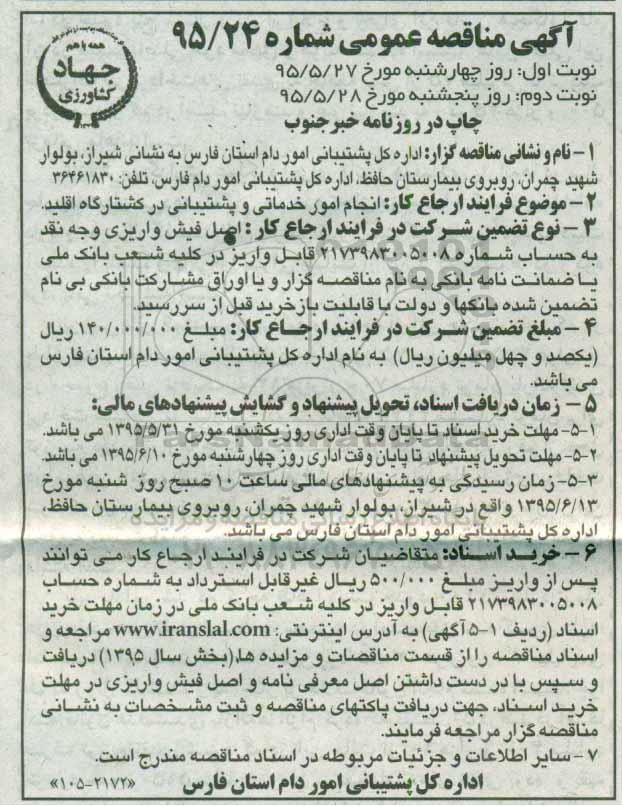 آگهی مناقصه عمومی شماره ۹۵/۲۴
همه با هم
جهاد
کشاورزی
نوبت اول: روز چهارشنبه مورخ ۹۵/۵/۲۷
نوبت دوم: روز پنجشنبه مورخ ۹۵/۵/۲۸
چاپ در روزنامه خبر جنوب
۱- نام و نشانی مناقصه گزار: اداره کل پشتیبانی امور دام استان فارس به نشانی شیراز، بولوار
شهید چمران، روبروی بیمارستان حافظ، اداره کل پشتیبانی امور دام فارس، تلفن: ۳۶۴۶۱۸۳۰
۲- موضوع فرایند ارجاع کار: انجام امور خدماتی و پشتیبانی در کشتارگاه اقلید.
۳- نوع تضمین شرکت در فرایند ارجاع کار: اصل فیش واریزی وجه نقد
به حساب شماره ۲۱۷۳۹۸۳۰۰۵۰۰۸ قابل واریز در کلیه شعب بانک ملی
یا ضمانت نامه بانکی به نام مناقصه گزار و یا اوراق مشارکت بانکی بی نام
تضمین شده بانکها و دولت با قابلیت بازخرید قبل از سررسید.
۴- مبلغ تضمین شرکت در فرایند ارجاع کار: مبلغ ۱۴۰/۰۰۰/۰۰۰ ریال
(یکصد و چهل میلیون ریال) به نام اداره کل پشتیبانی امور دام استان فارس
می باشد.
۵- زمان دریافت اسناد، تحویل پیشنهاد و گشایش پیشنهادهای مالی:
۵-۱- مهلت خرید اسناد تا پایان وقت اداری روز یکشنبه مورخ ۱۳۹۵/۵/۳۱ می باشد.
۵-۲- مهلت تحویل پیشنهاد تا پایان وقت اداری روز چهارشنبه مورخ ۱۳۹۵/۶/۱۰ می باشد.
۵-۳- زمان رسیدگی به پیشنهادهای مالی ساعت ۱۰ صبح روز شنبه مورخ
۱۳۹۵/۶/۱۳ واقع در شیراز، بولوار شهید چمران، روبروی بیمارستان حافظ،
اداره کل پشتیبانی امور دام استان فارس می باشد.
۶- خرید اسناد: متقاضیان شرکت در فرایند ارجاع کار می توانند
پس از واریز مبلغ ۵۰۰/۰۰۰ ریال غیرقابل استرداد به شماره حساب
۲۱۷۳۹۸۳۰۰۵۰۰۸ قابل واریز در کلیه شعب بانک ملی در زمان مهلت خرید
اسناد (ردیف ۱-۵ آگهی) به آدرس اینترنتی: www.iranslal.com مراجعه و
اسناد مناقصه را از قسمت مناقصات و مزایده ها،(بخش سال ۱۳۹۵) دریافت
و سپس با در دست داشتن اصل معرفی نامه و اصل فیش واریزی در مهلت
خرید اسناد، جهت دریافت پاکتهای مناقصه و ثبت مشخصات به نشانی
مناقصه گزار مراجعه فرمایند.
۷- سایر اطلاعات و جزئیات مربوطه در اسناد مناقصه مندرج است.
اداره کل پشتیبانی امور دام استان فارس «۱۰۵-۲۱۷۲»